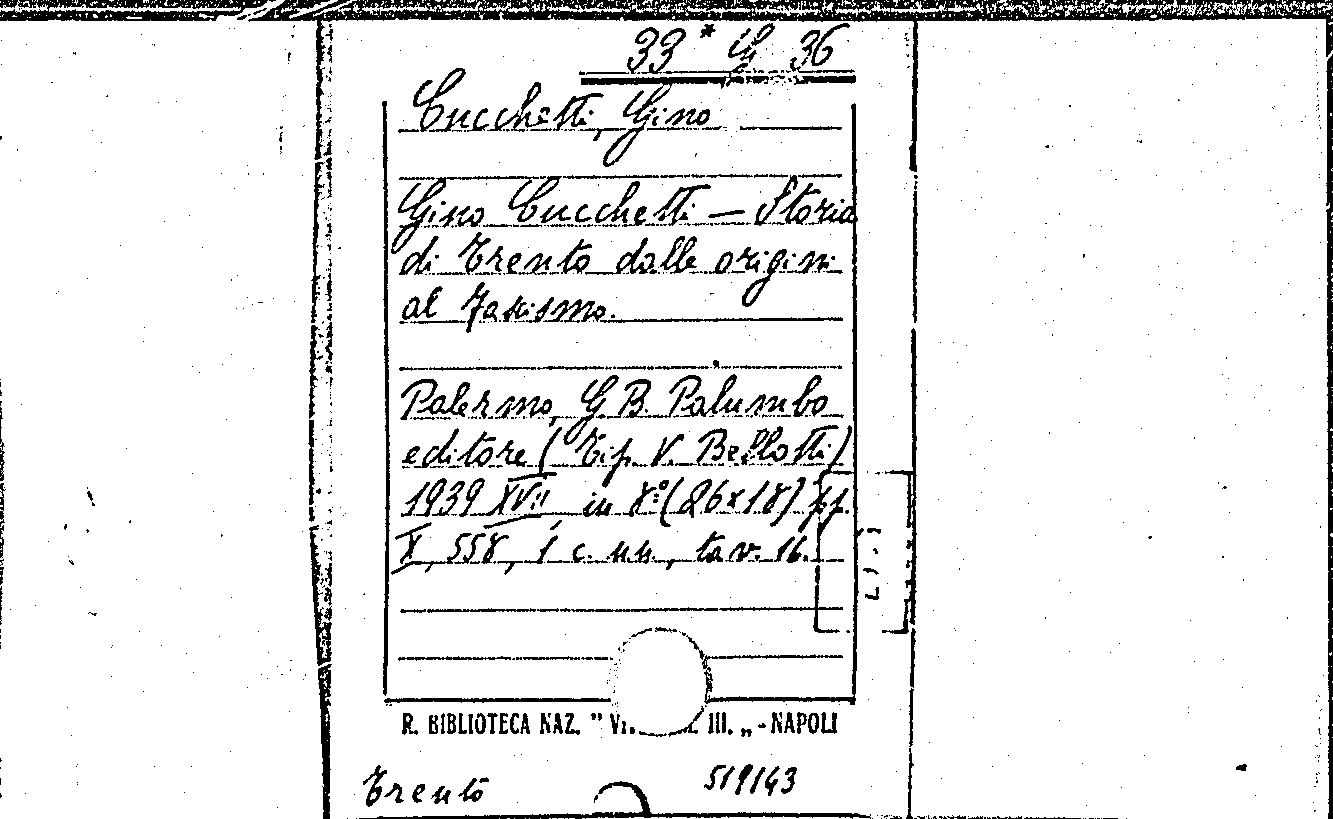 33* G 36
Cucchetti, Gino
Gino Cucchetti — Storia
di Trento dalle origini
al Fascismo.
Palermo, G.B. Palumbo
editore (Tip. V. Bellotti)
1939 XVII, in 8º (26x18) pp.
X, 558, 1 c. nn., tav. 16.
R. BIBLIOTECA NAZ. " III. „ - NAPOLI
Trento
519143